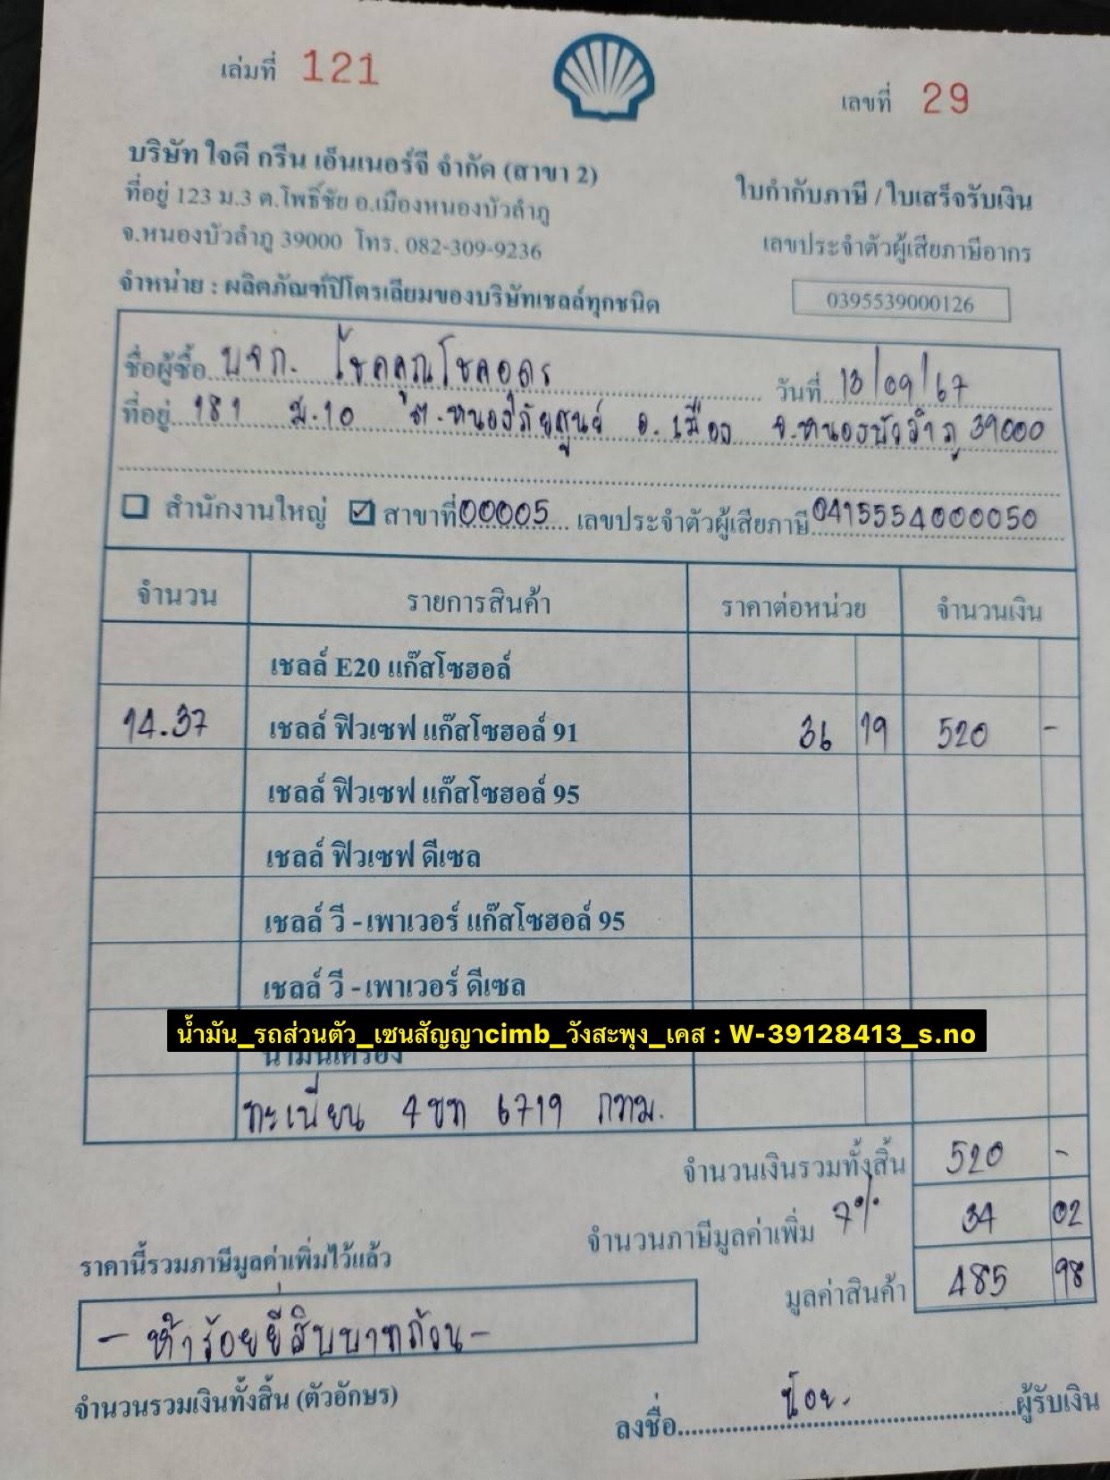 เล่มที่ 121
เลขที่ 29
บริษัท ใจดี กรีน เอ็นเนอร์จี จำกัด (สาขา 2)
ที่อยู่ 123 ม.3 ต.โพธิ์ชัย อ.เมืองหนองบัวลำภู
จ.หนองบัวลำภู 39000 โทร. 082-309-9236
จำหน่าย : ผลิตภัณฑ์ปิโตรเลียมของบริษัทเชลล์ทุกชนิด
ใบกำกับภาษี / ใบเสร็จรับเงิน
เลขประจำตัวผู้เสียภาษีอากร
0395539000126
ชื่อผู้ซื้อ บจก. โชคคูณโชคอุดร วันที่ 13/09/67
ที่อยู่ 181 ม.10 ต.หนองภัยศูนย์ อ.เมือง จ.หนองบัวลำภู 39000
สำนักงานใหญ่ ☑ สาขาที่ 00005 เลขประจำตัวผู้เสียภาษี 0415554000050
จำนวน รายการสินค้า ราคาต่อหน่วย จำนวนเงิน
เชลล์ E20 แก๊สโซฮอล์
14.37 เชลล์ ฟิวเซฟ แก๊สโซฮอล์ 91 36 19 520 -
เชลล์ ฟิวเซฟ แก๊สโซฮอล์ 95
เชลล์ ฟิวเซฟ ดีเซล
เชลล์ วี - เพาเวอร์ แก๊สโซฮอล์ 95
เชลล์ วี - เพาเวอร์ ดีเซล
น้ำมัน_รถส่วนตัว_เซนสัญญาcimb_วังสะพุง_เคส : W-39128413_s.no
น้ำมันเครื่อง
ทะเบียน 4ขท 6719 กทม.
จำนวนเงินรวมทั้งสิ้น 520 -
จำนวนภาษีมูลค่าเพิ่ม 7% 34 02
ราคานี้รวมภาษีมูลค่าเพิ่มไว้แล้ว
มูลค่าสินค้า 485 98
- ห้าร้อยยี่สิบบาทถ้วน -
จำนวนรวมเงินทั้งสิ้น (ตัวอักษร)
ลงชื่อ น้อย. ผู้รับเงิน